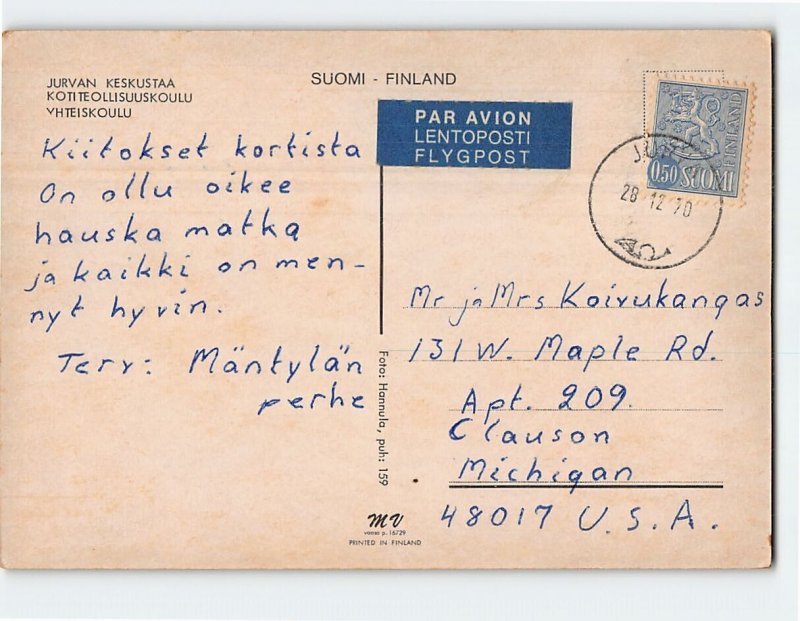 JURVAN KESKUSTAA
KOTITEOLLISUUSKOULU
YHTEISKOULU
SUOMI - FINLAND
PAR AVION
LENTOPOSTI
FLYGPOST
FINLAND
0,50 SUOMI
28.12.70
Kiitokset kortista
On ollu oikee
hauska matka
ja kaikki on men-
nyt hyvin.
Terv: Mäntylän
perhe
Mr ja Mrs Koivukangas
131 W. Maple Rd.
Apt. 209.
Clauson
Michigan
48017 U.S.A.
Foto: Hannula, puh: 159
MV
vaasa p. 16729
PRINTED IN FINLAND